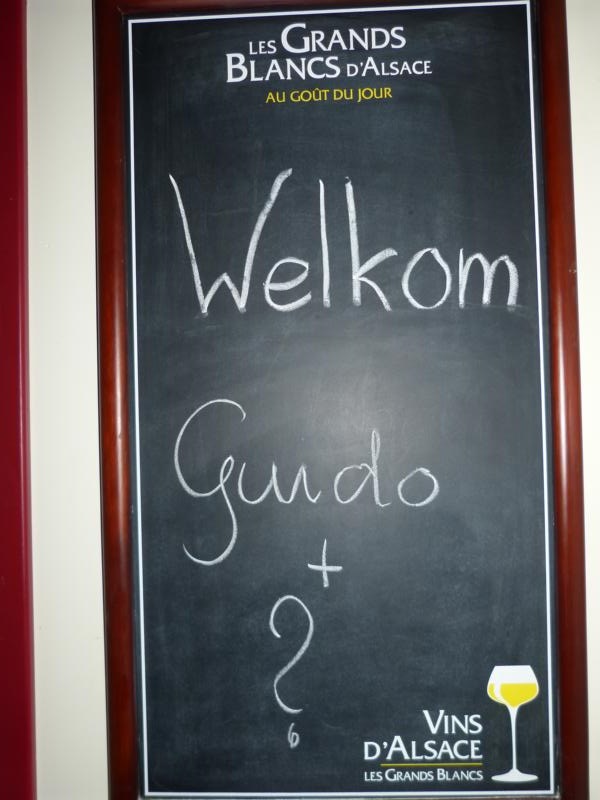 LES GRANDS
BLANCS D'ALSACE
AU GOÛT DU JOUR
Welkom
Guido
+
?
VINS
D'ALSACE
LES GRANDS BLANCS